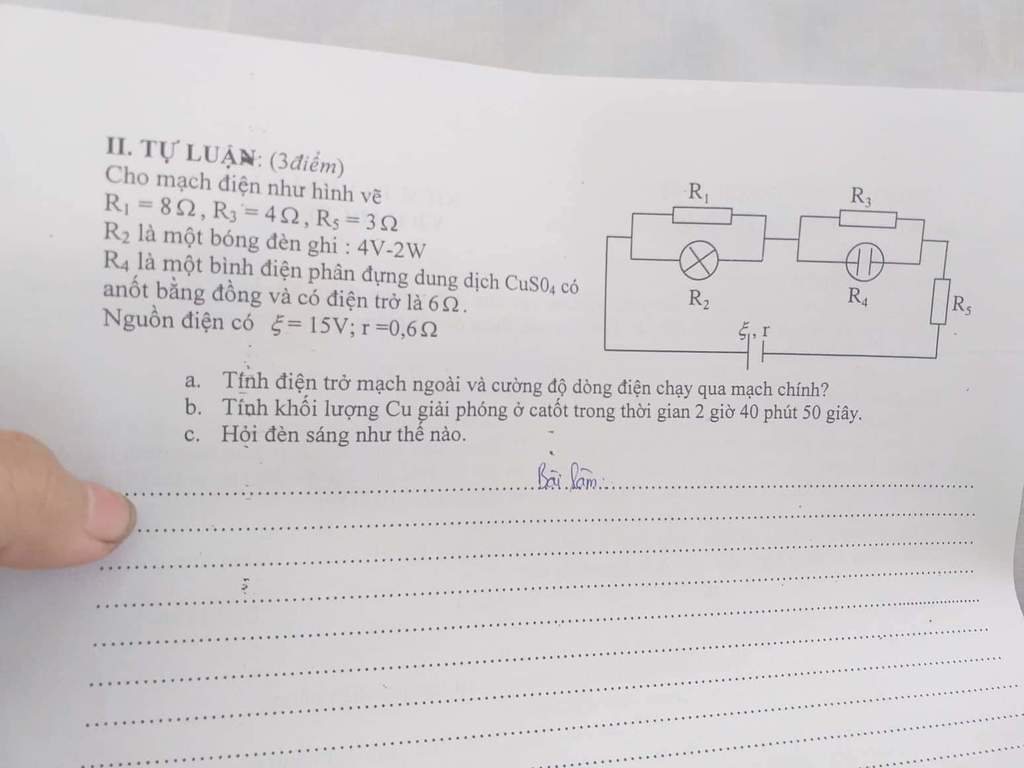 II. TỰ LUẬN: (3điểm)
Cho mạch điện như hình vẽ
R₁ = 8Ω, R₃ = 4Ω, R₅ = 3Ω
R₂ là một bóng đèn ghi : 4V-2W
R₄ là một bình điện phân đựng dung dịch CuS0₄ có
anốt bằng đồng và có điện trở là 6Ω.
Nguồn điện có ξ = 15V; r =0,6Ω
R₁
R₃
R₂
R₄
R₅
ξ, r
a. Tính điện trở mạch ngoài và cường độ dòng điện chạy qua mạch chính?
b. Tính khối lượng Cu giải phóng ở catốt trong thời gian 2 giờ 40 phút 50 giây.
c. Hỏi đèn sáng như thế nào.
Bài làm: